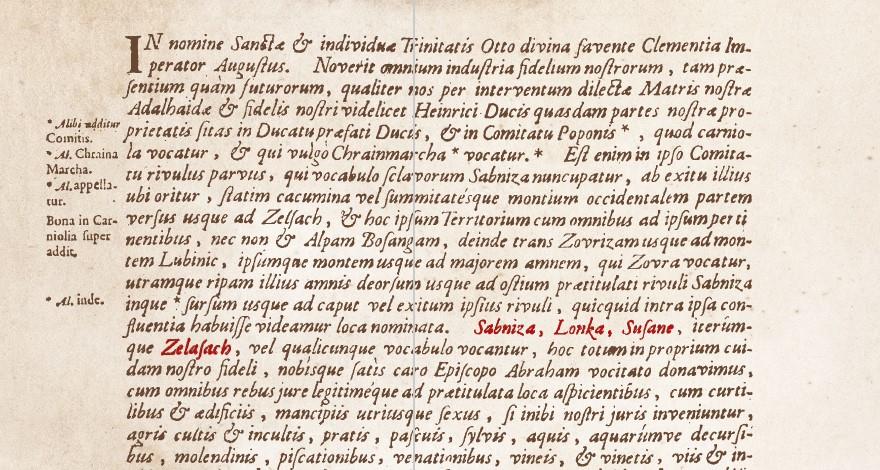 IN nomine Sanctæ & individuæ Trinitatis Otto divina favente Clementia Im-
perator Augustus. Noverit omnium industria fidelium nostrorum, tam præ-
sentium quàm futurorum, qualiter nos per interventum dilectæ Matris nostræ
Adalhaidæ & fidelis nostri videlicet Heinrici Ducis quasdam partes nostræ pro-
prietatis sitas in Ducatu præfati Ducis, & in Comitatu Poponis *, quod carnio-
la vocatur, & qui vulgò Chrainmarcha * vocatur. * Est enim in ipso Comita-
tu rivulus parvus, qui vocabulo sclavorum Sabniza nuncupatur, ab exitu illius
ubi oritur, statim cacumina vel summitatésque montium occidentalem partem
versus usque ad Zelsach, & hoc ipsum Territorium cum omnibus ad ipsum perti
nentibus, nec non & Alpam Bosangam, deinde trans Zovrizam usque ad mon-
tem Lubinic, ipsúmque montem usque ad majorem amnem, qui Zovra vocatur,
utramque ripam illius amnis deorsum usque ad ostium prætitulati rivuli Sabniza
inque * sursum usque ad caput vel exitum ipsius rivuli, quicquid intra ipsa con-
fluentia habuisse videamur loca nominata. Sabniza, Lonka, Susane, iterúm-
que Zelasach, vel qualicunque vocabulo vocantur, hoc totum in proprium cui-
dam nostro fideli, nobisque satis caro Episcopo Abraham vocitato donavimus,
cum omnibus rebus jure legitiméque ad prætitulata loca aspicientibus, cum curti-
libus & ædificiis, mancipiis utriusque sexus, si inibi nostri juris inveniuntur,
agris cultis & incultis, pratis, pascuis, sylvis, aquis, aquarúmve decursi-
bus, molendinis, piscationibus, venationibus, vineis, & vinetis, viis & in-
* Alibi additur
Comitis.
* Al. Chraina
Marcha.
* Al. appella-
tur.
Bona in Car-
niolia super
addit.
* Al. inde.